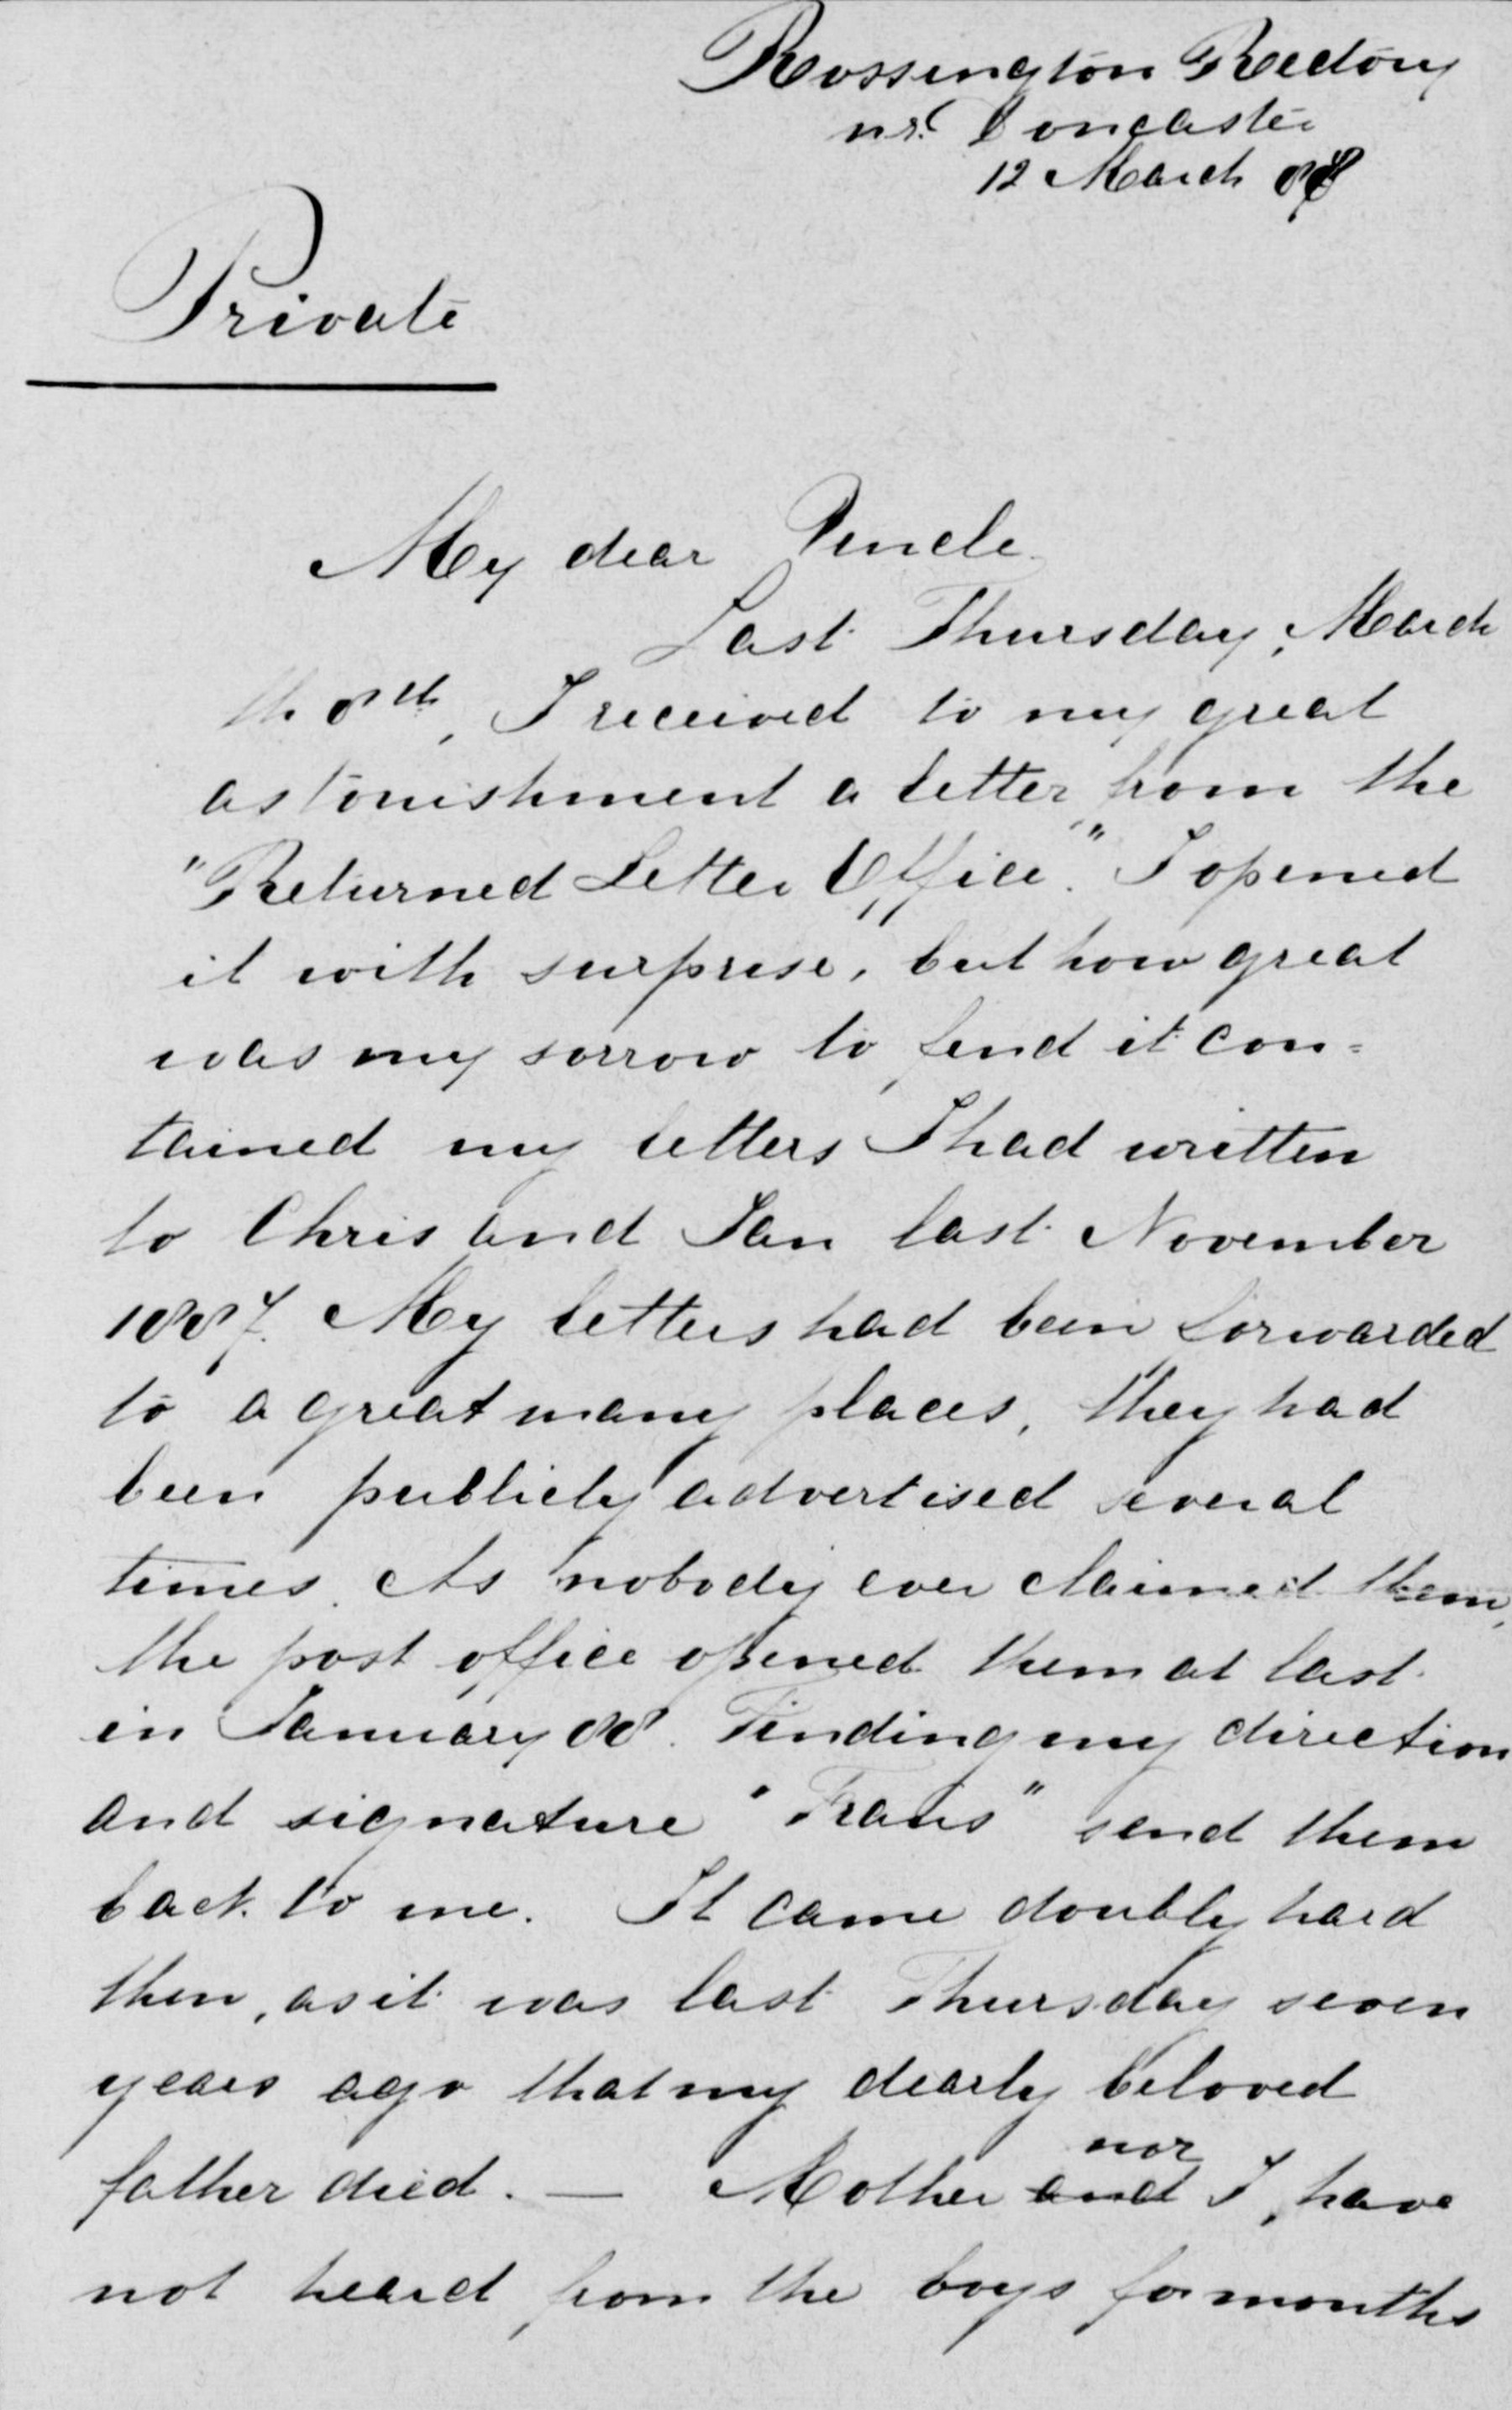 Rossington Rectory
nr. Doncaster
12 March 88
Private
My dear Uncle
Last Thursday, March
th 8th, I received to my great
astonishment a letter from the
"Returned Letter Office." I opened
it with surprise, but how great
was my sorrow to find it con=
tained my letters I had written
to Chris and Jan last November
1887. My letters had been forwarded
to a great many places, they had
been publicly advertised several
times. As nobody ever claimed them,
the post office opened them at last
in January 88. Finding my direction
and signature "Frans" send them
back to me. It came doubly hard
then, as it was last Thursday seven
years ago that my dearly beloved
father died. — Mother and nor I, have
not heard from the boys for months